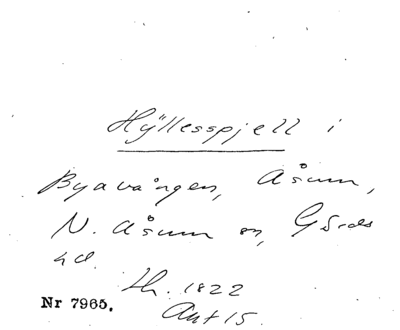 Hÿllesspjell i
Byavången, Åsum,
N. Åsum sn, Gärds
hd.
Lh. 1822
Akt 15.
Nr 7965.